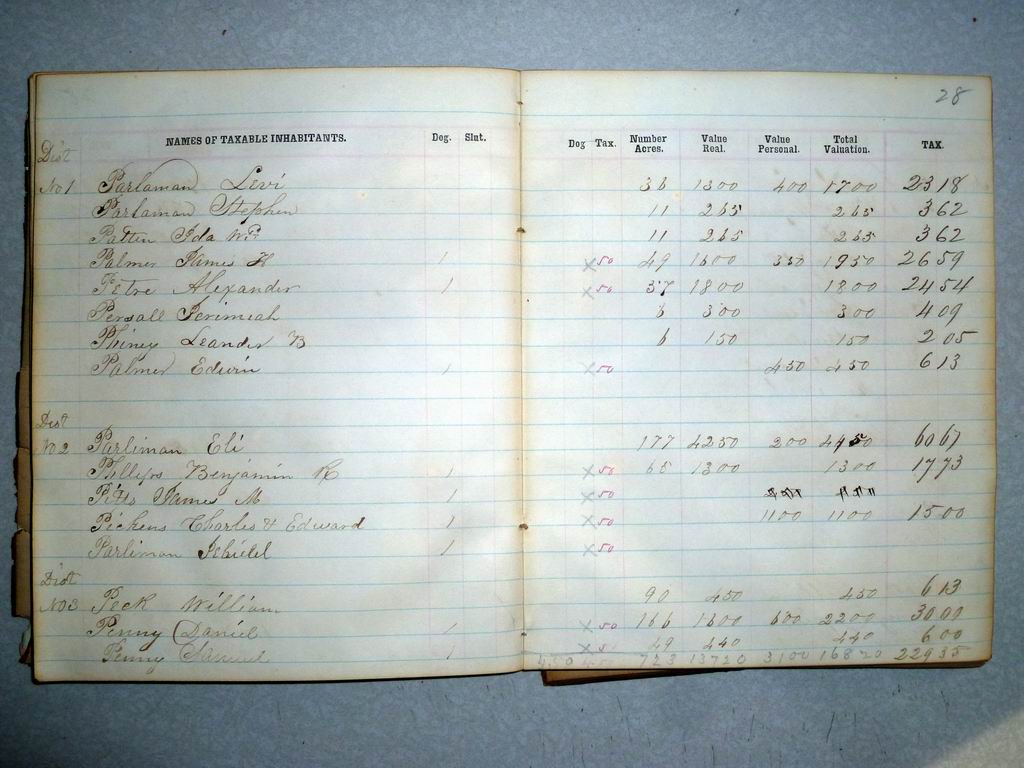 28
NAMES OF TAXABLE INHABITANTS. Dog. Slut. Dog Tax. Number Acres. Value Real. Value Personal. Total Valuation. TAX.
Dist
No 1 Parlaman Levi 36 1300 400 1700 23 18
Parlaman Stephen 11 265 265 3 62
Patten Ida 11 265 265 3 62
Palmer James H 1 x50 49 1600 350 1950 26 59
Petre Alexander 1 x50 37 1800 1800 24 54
Persall Jerimiah 6 300 300 4 09
Phiney Leander B 6 150 150 2 05
Palmer Edwin 1 x50 450 450 6 13
Dist
No 2 Parliman Eli 177 4250 200 4450 60 67
Phillips Benjamin R 1 x50 65 1300 1300 17 73
Pitts James M 1 x50
Pickens Charles & Edward 1 x50 1100 1100 15 00
Parliman 1 x50
Dist
No 3 Peck William 90 450 450 6 13
Penny Daniel 1 x50 166 1600 600 2200 30 00
Penny Samuel 1 x50 49 440 440 6 00
4.50 4.50 723 13720 3100 16820 229 35